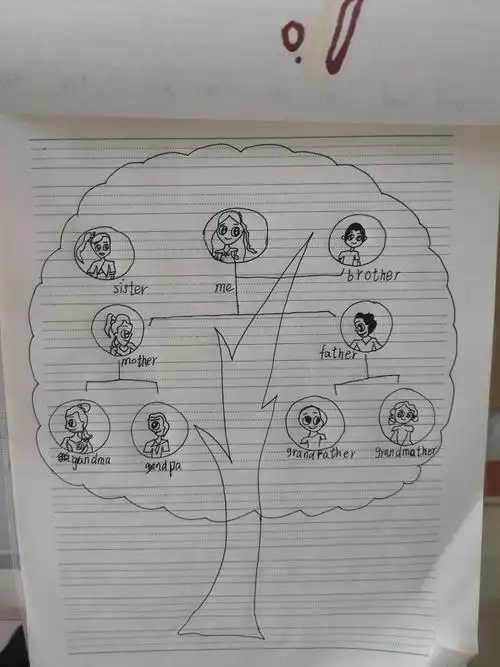 sister
me
brother
mother
father
gagandma
gandpa
grandFather
grandmather